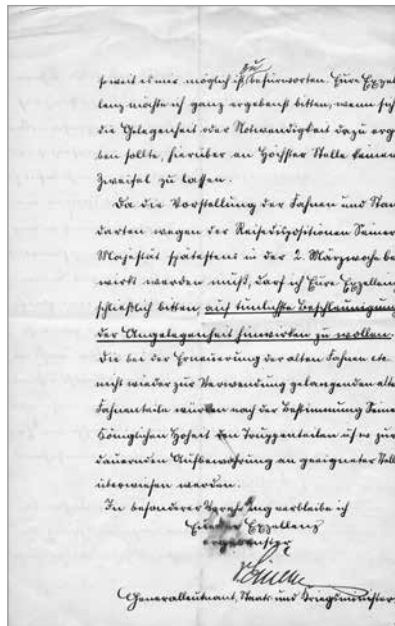 zu
soweit es mir möglich ist, befürworten. Eure Exzel-
lenz möchte ich ganz ergebenst bitten, wenn sich
die Gelegenheit oder Notwendigkeit dazu erge-
ben sollte, hierüber an Höchster Stelle keinen
Zweifel zu lassen.
Da die Vorstellung der Fahnen und Stan-
darten wegen der Reisedispositionen Seiner
Majestät spätestens in der 2. Märzwoche be-
wirkt werden muß, darf ich Eure Exzellenz
schließlich bitten, auf tunlichste Beschleunigung
der Angelegenheit hinwirken zu wollen.
Die bei der Erneuerung der alten Fahnen etc
nicht wieder zur Verwendung gelangenden alten
Fahnenteile würden nach der Bestimmung Seiner
Königlichen Hoheit den Truppenteilen usw zur
dauernden Aufbewahrung an geeigneter Stelle
überwiesen werden.
In besonderer Verehrung verbleibe ich
Exzellenz
ergebenster
v Einem
Generalleutnant, Staats- und Kriegsminister.